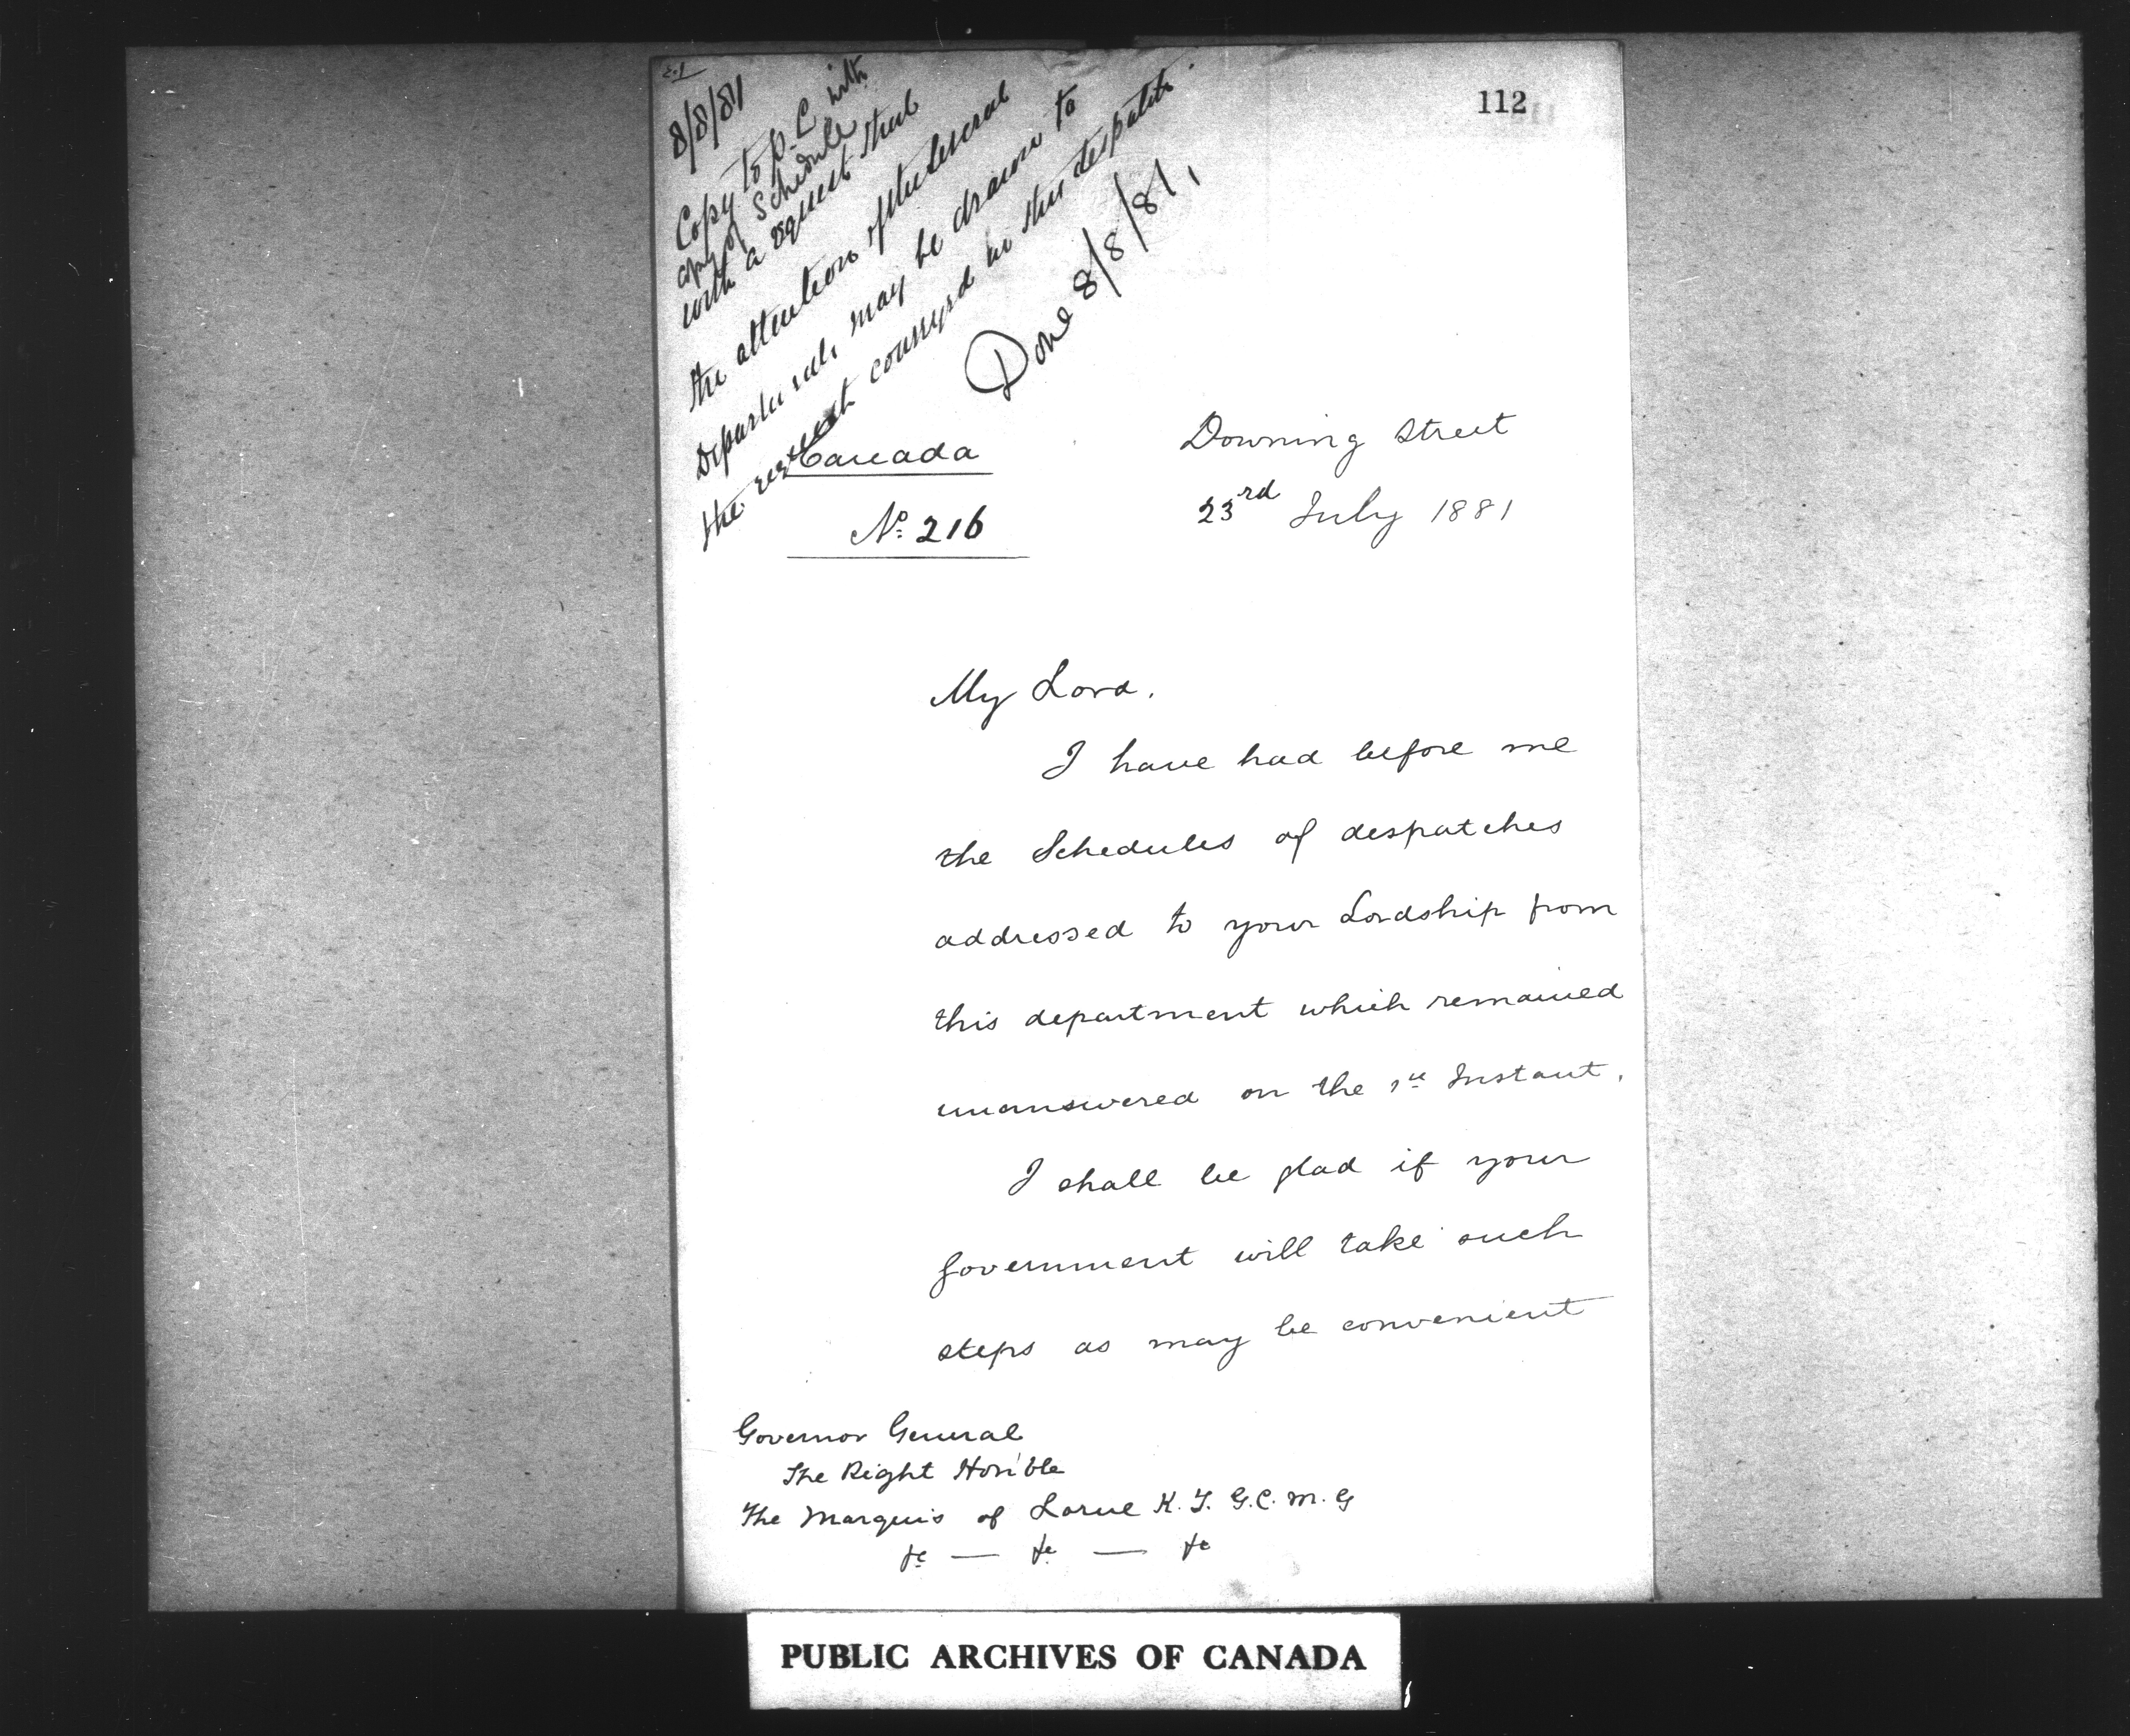 112
8/8/81
Copy to P. C. with
copy of Schedule
with a request that
the attention of the several
Departments may be drawn to
the request conveyed in this despatch.
Done 8/8/81,
Canada
No. 216
Downing Street
23rd July 1881
My Lord.
I have had before me
the Schedules of despatches
addressed to your Lordship from
this department which remained
unanswered on the 1st Instant.
I shall be glad if your
Government will take such
steps as may be convenient
Governor General
The Right Hon'ble
The Marquis of Lorne K. T. G. C. M. G
&c — &c — &c
PUBLIC ARCHIVES OF CANADA